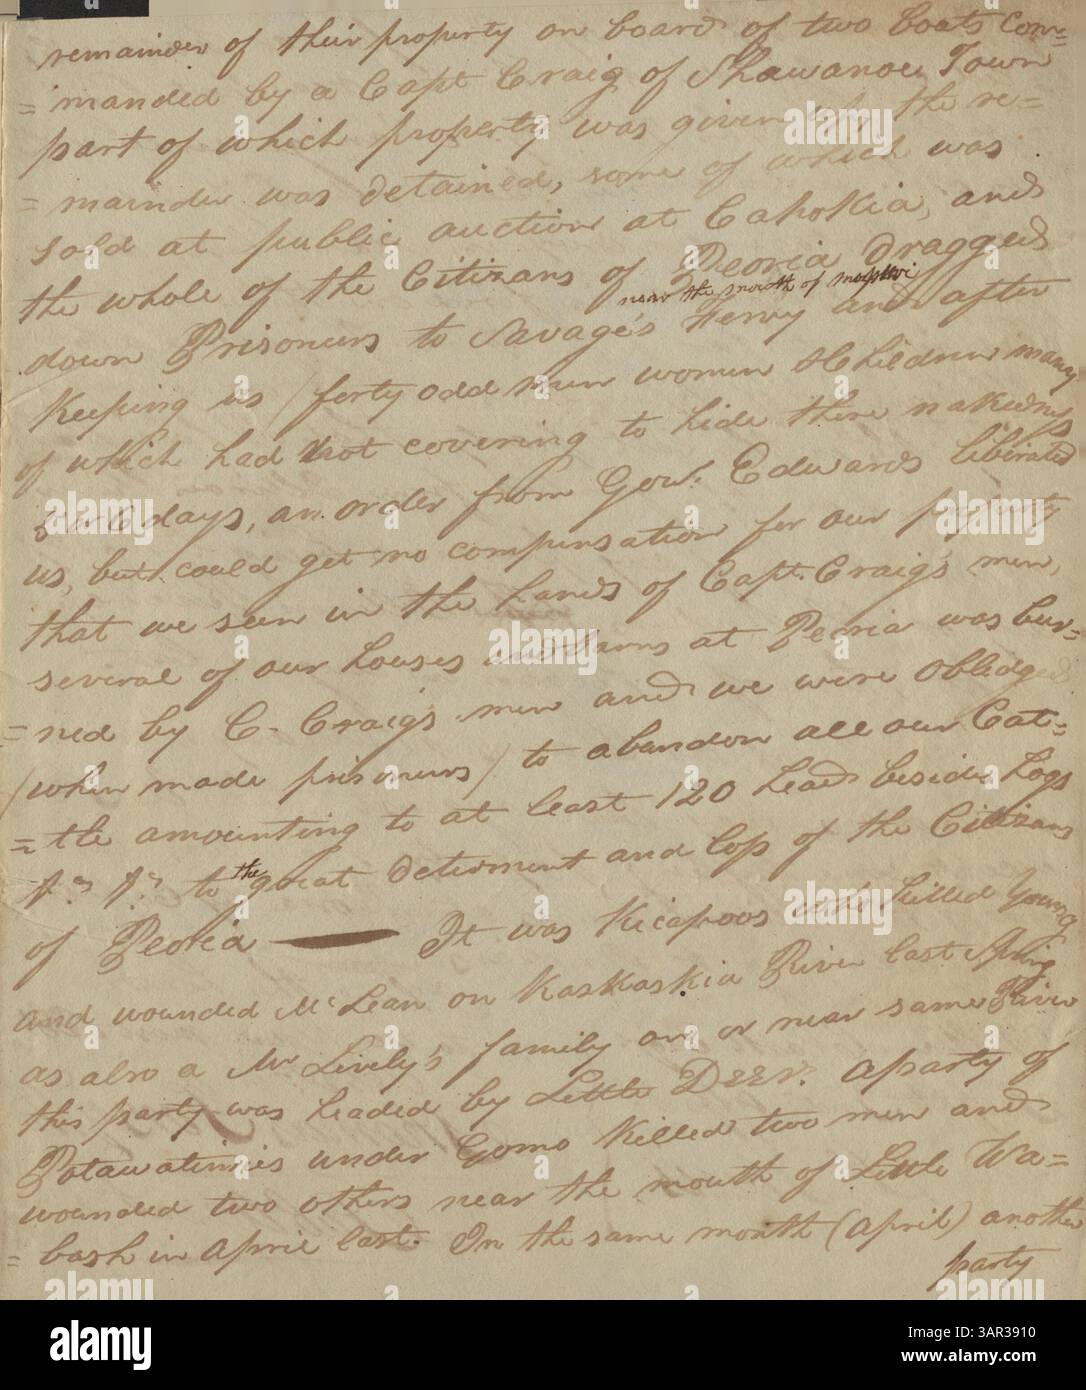 remainder of their property on board of two boats Com=
=manded by a Capt Craig of Shawanoe Town
part of which property was given up, the re=
=mainder was detained, some of which was
sold at public auction at Cahokia, and
the whole of the Citizans of Peoria dragged
near the mouth of
down Prisoners to Savage's Ferry and after
Keeping us / forty odd men women & Children many
of which had not covering to hide there nakedness
for 6 days, an order from Gov. Edwards liberated
us, but could get no compensation for our property
that we seen in the hands of Capt. Craig's men,
several of our houses and barns at Peoria was bur=
=ned by C. Craig's men and we were obliged
/ when made prisoners / to abandon all our Cat=
=tle amounting to at least 120 head beside Hogs
&c &c to the great deteriment and loss of the Citizans
of Peoria — It was Kicapoos who killed Young
and wounded McLean on Kaskaskia River last Spring
as also a Mr Lively's family on or near same River
this party was headed by Little Deer. A party of
Potawatimies under Gomo killed two men and
wounded two others near the mouth of Little Wa=
=bash in April last. In the same month (April) another
party
alamy
Image ID: 3AR3910
www.alamy.com